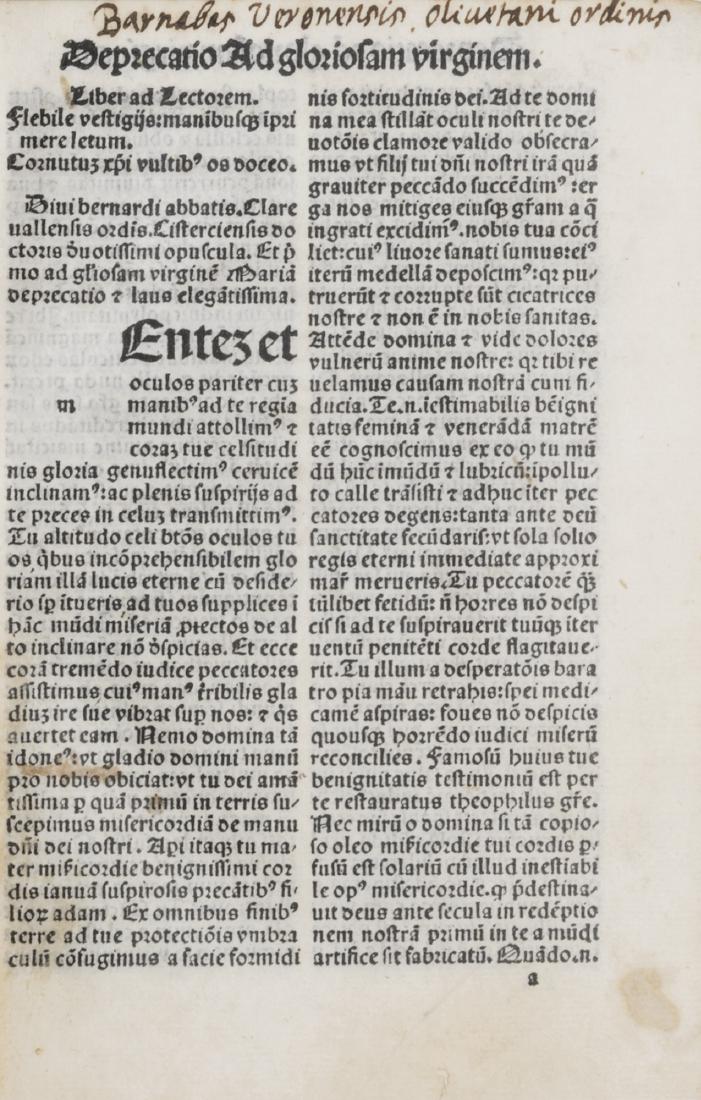 Barnabas Veronensis. oliuetani ordinis
Deprecatio Ad gloriosam virginem.
Liber ad Lectorem.
Flebile vestigijs:manibusqꝫ īpri
mere letum.
Cornutuꝫ xp̄i vultibꝰ os doceo.
Diui bernardi abbatis.Clare
uallensis ordīs.Cisterciensis do
ctoris ðuotissimi opuscula. Et p̄
mo ad gl̄iosam virginē Mariā
deprecatio ⁊ laus elegātissima.
Enteꝫ et
oculos pariter cuꝫ
m manibꝰad te regia
mundi attollimꝰ ⁊
coraꝫ tue celsitudi
nis gloria genuflectimꝰ ceruicē
inclinamꝰ:ac plenis suspirijs ad
te preces in celuꝫ transmittimꝰ.
Tu altitudo celi btōs oculos tu
os q̇bus incōprehensibilem glo
riam illā lucis eterne cū deside/
rio sp̄ ītueris ad tuos supplices ī
hāc mūdi miseriā ꝓiectos de al
to inclinare nō ðspicias. Et ecce
corā tremēdo iudice peccatores
assistimus cuiꝰmanꝰ t̄ribilis gla
diuꝫ ire sue vibrat suꝑ nos: ⁊ q̇s
auertet eam . Nemo domina tā
idoneꝰ:vt gladio domini manū
pro nobis obiciat:vt tu dei amā
tissima ꝑ quā primū in terris su/
scepimus misericordiā de manu
dn̄i dei nostri . Api itaqꝫ tu ma/
ter mīicordie benignissimi cor
dis ianuā suspirosis precātibꝰ fi/
lioꝝ adam . Ex omnibus finibꝰ
terre ad tue protectiōis vmbra
culū cōfugimus a facie formidi
nis fortitudinis dei.Ad te domi
na mea stillāt oculi nostri te de/
uotōis clamore valido obsecra/
mus vt filij tui dn̄i nostri irā quā
grauiter peccādo succēdimꝰ :er
ga nos mitiges eiusqꝫ gr̄am a q̄
ingrati excidimꝰ.nobis tua cōci
liet:cuiꝰ liuore sanati sumus:eiꝰ
iterū medellā deposcimꝰ:qꝛ pu/
truerūt ⁊ corrupte sūt cicatrices
nostre ⁊ non ē in nobis sanitas.
Attēde domina ⁊ vide dolores
vulnerū anime nostre: qꝛ tibi re
uelamus causam nostrā cum fi/
ducia.Te.n.īestimabilis bēigni
tatis feminā ⁊ venerādā matrē
eē cognoscimus ex eo ꝙ tu mū
dū hūc īmūdū ⁊ lubricū:ipollu/
to calle trāsisti ⁊ adhuc īter pec
catores degens:tanta ante deū
sanctitate secūdaris:vt sola solio
regis eterni immediate approxi
mar̄ merueris.Tu peccatorē qꝫ
tūlibet fetidū: n̄ horres nō despi
cis si ad te suspirauerit tuūqꝫ iter
uentū penitēti corde flagitaue/
rit.Tu illum a desperatōis bara
tro pia māu retrahis:spei medi/
camē aspiras: foues nō despicis
quousqꝫ horrēdo iudici miserū
reconcilies . Famosū huius tue
benignitatis testimoniū est per
te restauratus theophilus gr̄e.
Nec mirū o domina si tā copio/
so oleo mīicordie tui cordis ꝑ/
fusū est solariū cū illud inestiabi
le opꝰ misericordie.ꝙ p̄destina/
uit deus ante secula in redēptio
nem nostrā primū in te a mūdi
artifice sit fabricatū. Quādo.n.
a